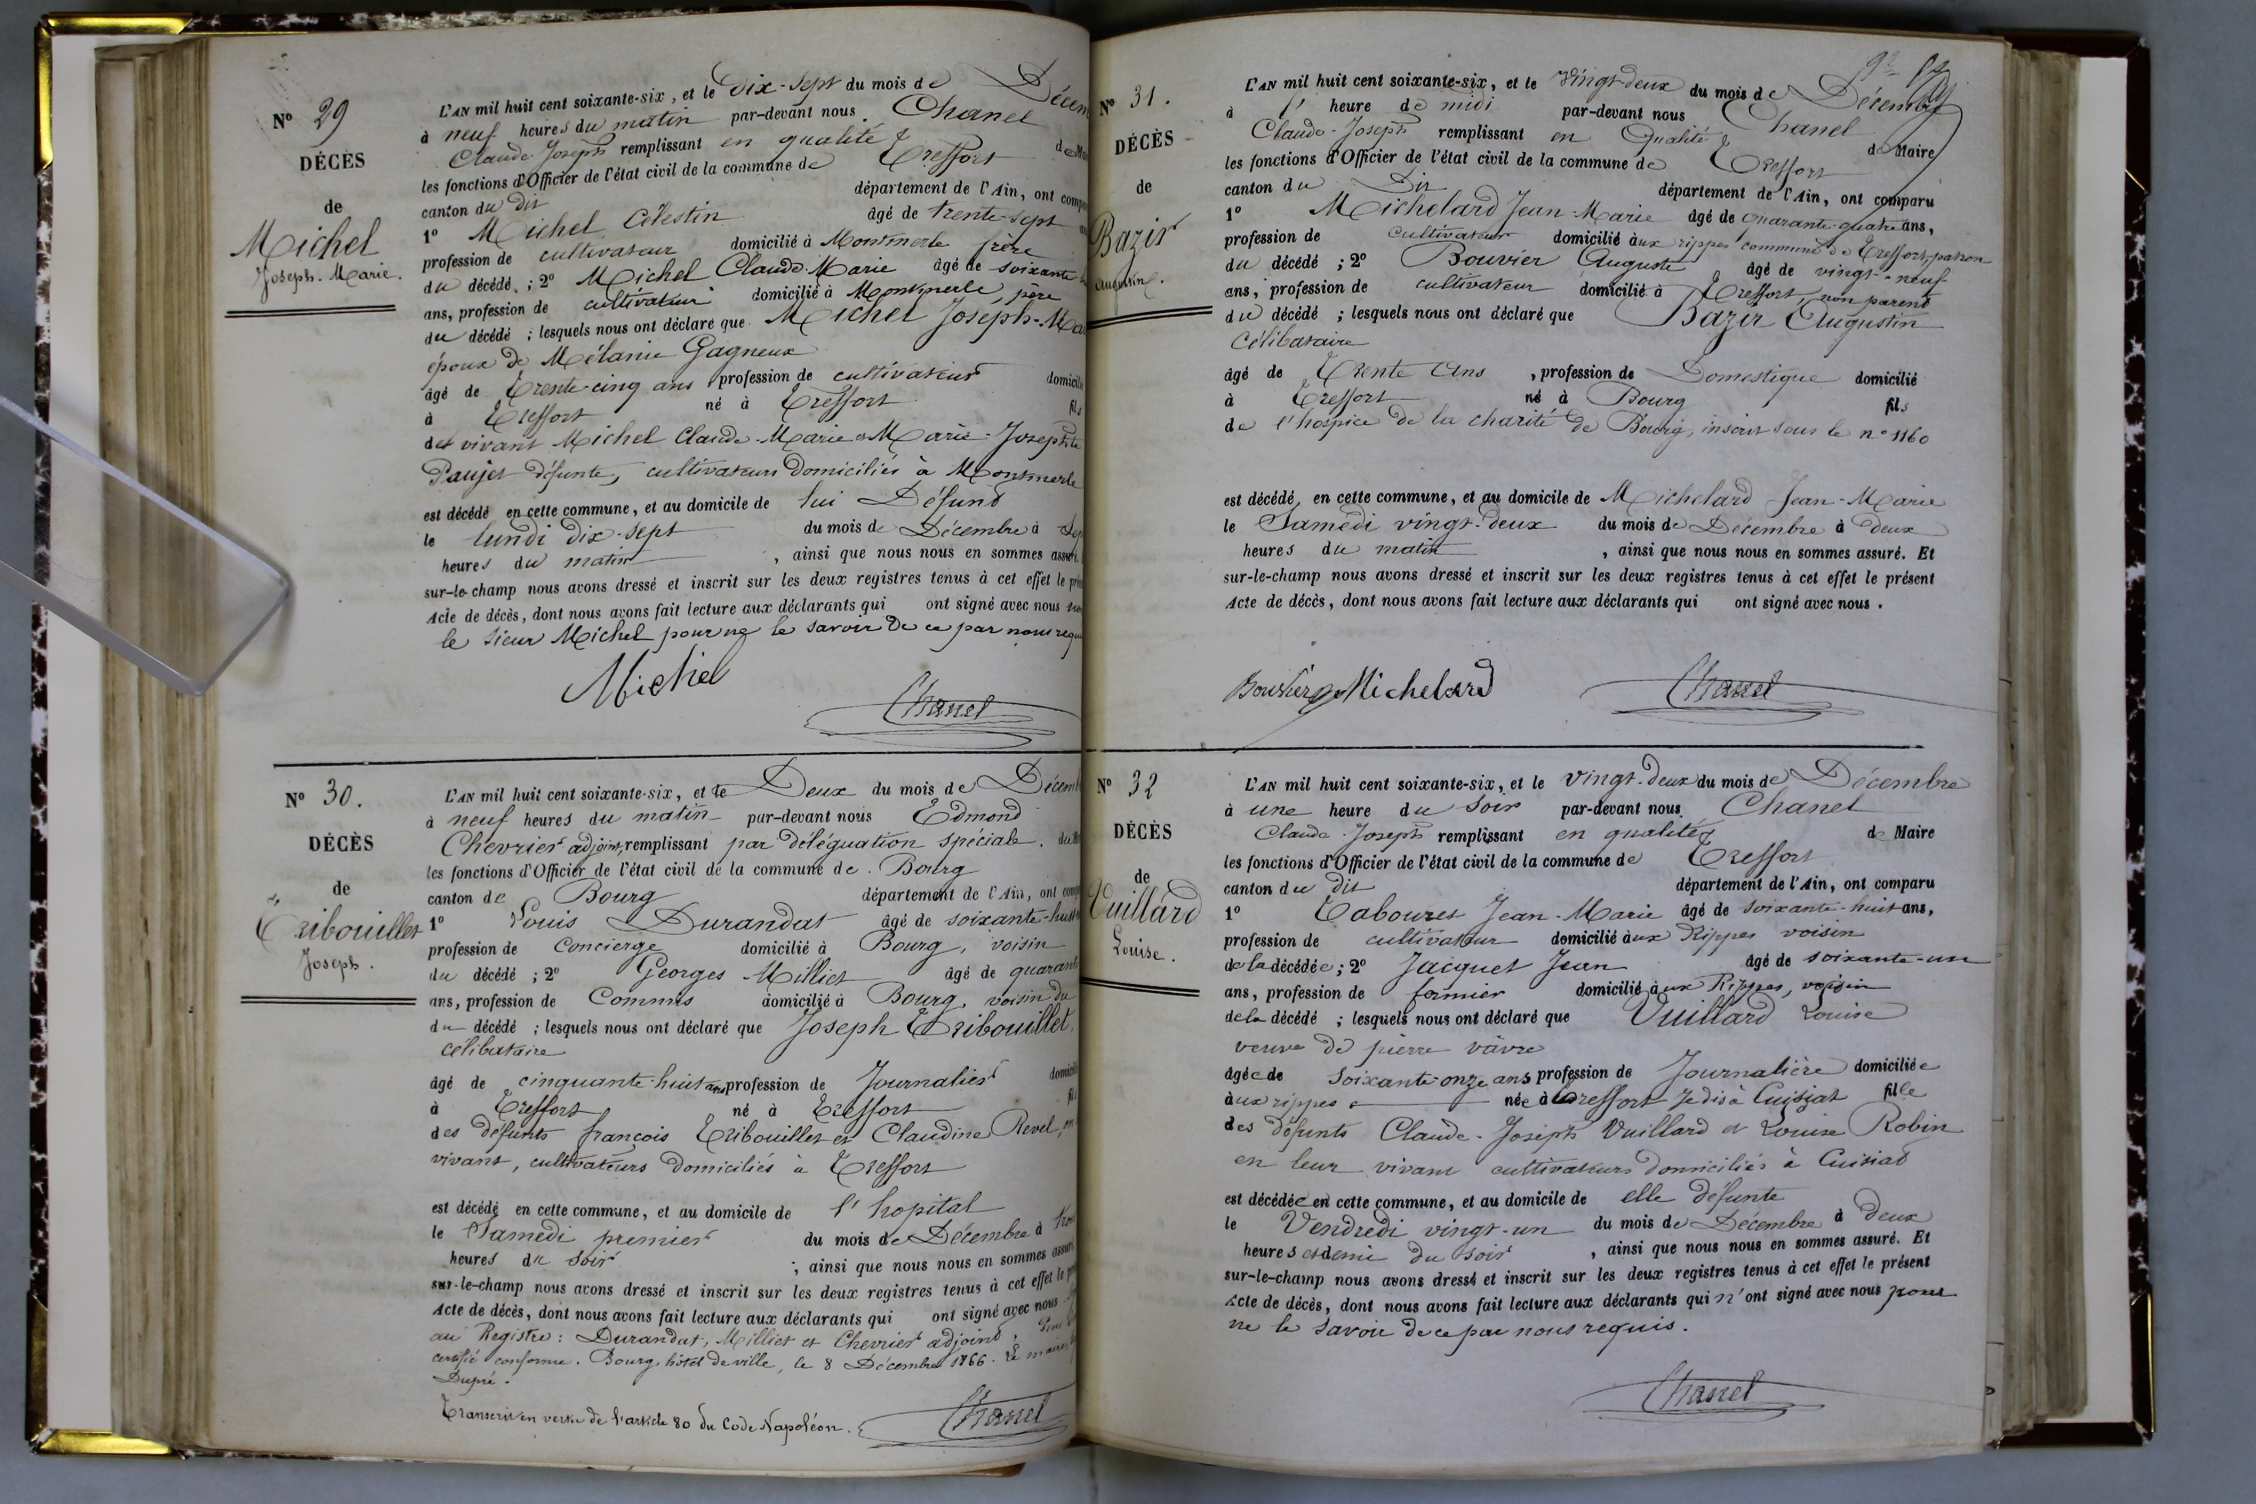 N° 29
DÉCÈS
de
Michel
Joseph-Marie.
L'AN mil huit cent soixante-six, et le Dix-sept du mois de Décem
à neuf heures du matin par-devant nous Chanel
Claude-Joseph remplissant en qualité de
les fonctions d'Officier de l'état civil de la commune de Treffort
canton du dit département de l'Ain, ont comp
1° Michel Célestin âgé de trente-sept
profession de cultivateur domicilié à Montmerle frère
du décédé ; 2° Michel Claude-Marie âgé de soixante
ans, profession de cultivateur domicilié à Montmerle, père
du décédé ; lesquels nous ont déclaré que Michel Joseph-Ma
époux de Mélanie Gagneux
âgé de Trente-cinq ans profession de cultivateur domicilié
à Treffort né à Treffort fils
de vivant Michel Claude-Marie & Marie-Josephte
Paujet défunte, cultivateurs domiciliés à Montmerle
est décédé en cette commune, et au domicile de lui Défunt
le lundi dix-sept du mois de Décembre à Sep
heures du matin , ainsi que nous nous en sommes assuré
sur-le-champ nous avons dressé et inscrit sur les deux registres tenus à cet effet le pré
Acte de décès, dont nous avons fait lecture aux déclarants qui ont signé avec nous
le sieur Michel pour ne le savoir de ce par nous requ
Michel
Chanel
N° 30.
DÉCÈS
de
Tribouillet
Joseph.
L'AN mil huit cent soixante-six, et le Deux du mois de Décemb
à neuf heures du matin par-devant nous Edmond
Chevrier adjoint, remplissant par déléguation spéciale du
les fonctions d'Officier de l'état civil de la commune de Bourg
canton de Bourg département de l'Ain, ont comp
1° Louis Durandat âgé de soixante-huit
profession de Concierge domicilié à Bourg, voisin
du décédé ; 2° Georges Milliet âgé de quarante
ans, profession de Commis domicilié à Bourg, voisin du
du décédé ; lesquels nous ont déclaré que Joseph Tribouillet,
célibataire
âgé de cinquante-huit ans profession de Journalier domicilié
à Treffort né à Treffort fil
des défunts françois Tribouillet et Claudine Revel, en
vivant, cultivateurs domiciliés à Treffort
est décédé en cette commune, et au domicile de l'hopital
le Samedi premier du mois de Décembre à troi
heures du soir , ainsi que nous nous en sommes assuré
sur-le-champ nous avons dressé et inscrit sur les deux registres tenus à cet effet le p
Acte de décès, dont nous avons fait lecture aux déclarants qui ont signé avec nous
au Registre : Durandat, Milliet et Chevrier adjoint. Pour
certifié conforme. Bourg, hôtel de ville, le 8 Décembre 1866. Le maire,
Dupré.
Transcrit en vertu de l'article 80 du Code Napoléon.
Chanel
N° 31.
DÉCÈS
de
Bazir
Augustin.
L'AN mil huit cent soixante-six, et le Vingt-deux du mois de Décembre
à l' heure de midi par-devant nous Chanel
Claude-Joseph remplissant en Qualité de Maire
les fonctions d'Officier de l'état civil de la commune de Treffort
canton du Dit département de l'Ain, ont comparu
1° Michelard Jean-Marie âgé de quarante-quatre ans,
profession de cultivateur domicilié aux rippes commune de Treffort, patron
du décédé ; 2° Bouvier Auguste âgé de vingt-neuf
ans, profession de cultivateur domicilié à Treffort, non parent
du décédé ; lesquels nous ont déclaré que Bazir Augustin
Célibataire
âgé de Trente Ans , profession de Domestique domicilié
à Treffort né à Bourg fils
de l'hospice de la charité de Bourg, inscrit sous le n° 1160
est décédé en cette commune, et au domicile de Michelard Jean-Marie
le Samedi vingt-deux du mois de Décembre à deux
heures du matin , ainsi que nous nous en sommes assuré. Et
sur-le-champ nous avons dressé et inscrit sur les deux registres tenus à cet effet le présent
Acte de décès, dont nous avons fait lecture aux déclarants qui ont signé avec nous.
Bouvier Michelard
Chanel
N° 32
DÉCÈS
de
Vuillard
Louise.
L'AN mil huit cent soixante-six, et le vingt-deux du mois de Décembre
à une heure du soir par-devant nous Chanel
Claude-Joseph remplissant en qualité de Maire
les fonctions d'Officier de l'état civil de la commune de Treffort
canton du dit département de l'Ain, ont comparu
1° Tabouret Jean-Marie âgé de soixante-huit ans,
profession de cultivateur domicilié aux Rippes voisin
de la décédée ; 2° Jacquet Jean âgé de soixante-un
ans, profession de fermier domicilié aux Rippes, voisin
de la décédé ; lesquels nous ont déclaré que Vuillard Louise
veuve de pierre vavre
âgée de soixante onze ans profession de Journalière domiciliée
aux rippes née à Treffort Je dis à Cuisiat fille
des défunts Claude-Joseph Vuillard et Louise Robin
en leur vivant cultivateurs domiciliés à Cuisiat
est décédée en cette commune, et au domicile de elle défunte
le Vendredi vingt-un du mois de Décembre à deux
heures et demie du soir , ainsi que nous nous en sommes assuré. Et
sur-le-champ nous avons dressé et inscrit sur les deux registres tenus à cet effet le présent
Acte de décès, dont nous avons fait lecture aux déclarants qui n'ont signé avec nous pour
ne le savoir de ce par nous requis.
Chanel